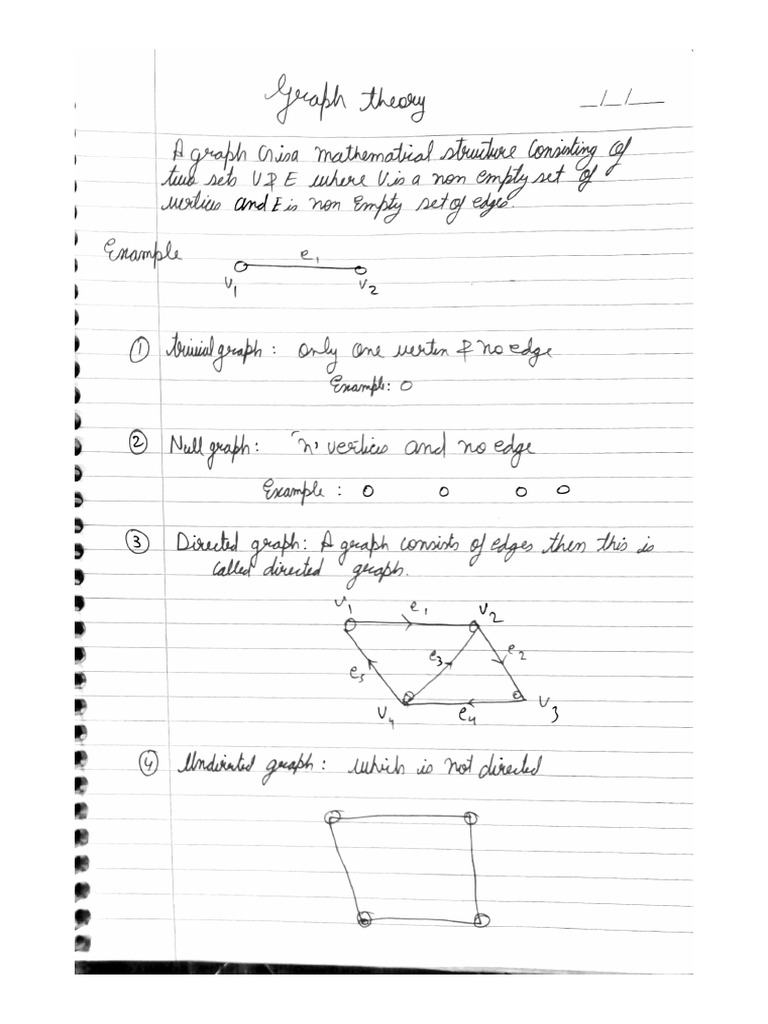 Graph theory
__/__/__
A graph G is a mathematical structure consisting of
two sets V & E where V is a non empty set of
vertices and E is non Empty set of edges.
Example
e1
V1 V2
① trivial graph : only one vertex & no edge
Example: O
② Null graph : 'n' vertices and no edge
Example : O O O O
③ Directed graph : A graph consists of edges then this is
called directed graph.
V1 e1 V2
e5 e3 e2
V4 e4 V3
④ Undirated graph : which is not directed